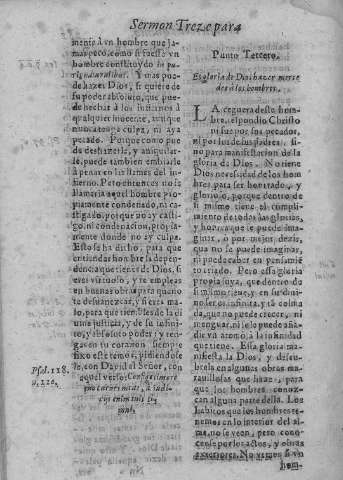 Sermon Treze para
mente à vn hombre que ja-
mas pecò, como si fuesse vn
hombre constituydo in pu-
ris naturalibus. Y mas pue-
de hazer Dios, si quiere de
su poder absoluto, que pue-
de hechar à los infiernos à
qualquier inocente, aunque
nunca tenga culpa, ni aya
pecado. Porque como pue-
de deshazerle, y aniquilar-
le, puede tambien embiarle
à penar en las llamas del in-
fierno. Pero entonces no se
llamaria aquel hombre pro-
piamente condenado, ni ca-
stigado, porque no ay casti-
go, ni condenacion, propia-
mente donde no ay culpa.
Esto se ha dicho, para que
entiendas hombre la depen-
dencia que tienes de Dios, si
eres virtuoso, y te empleas
en obras malo, para que no
te desuanezcas, y si eres ma-
lo, para que tiembles de la di-
uina justicia, y de su infini-
to, y absoluto poder, y ten-
gas en tu coraçon siempre
fixo este temor, pidiendose-
le, con Dauid al Señor, con
aquel verso: Confige timore
tuo carnes meas, à iudi-
cijs enim tuis ti-
mui.
Psal. 118.
v. 120.
Punto Tercero.
Es gloria de Dios hazer merce
des à los hombres.
LA ceguera deste hom-
bre, respondio Christo
ni fue por sus pecados,
ni por los de sus padres, si-
no para manifestacion de la
gloria de Dios. No tiene
Dios necessidad de los hom-
bres para ser honrado, y
glorioso, porque dentro de
si mismo tiene el cumpli-
miento de todas las glorias,
y honras que se puede ima-
ginar, o por mejor dezir,
que no se puede imaginar,
ni puede caber en pensamie
to criado. Pero essa gloria
propia suya, que dentro de
si mismo tiene, y en su diui-
no ser es infinita, y tã colma
da, que no puede crecer, ni
menguar, ni se le puede aña-
dir vn atomo à la infinidad
que tiene. Esta gloria ma-
nifiesta la Dios, y descu-
brela en algunas obras ma-
rauillosas que haze, para
que los hombres conoz-
can alguna parte della. Los
habitos que los hombres tie-
nen en lo interior del al-
ma, no se veen, pero cono-
cense por los actos, y obras
exteriores. No vemos si vn
hom-